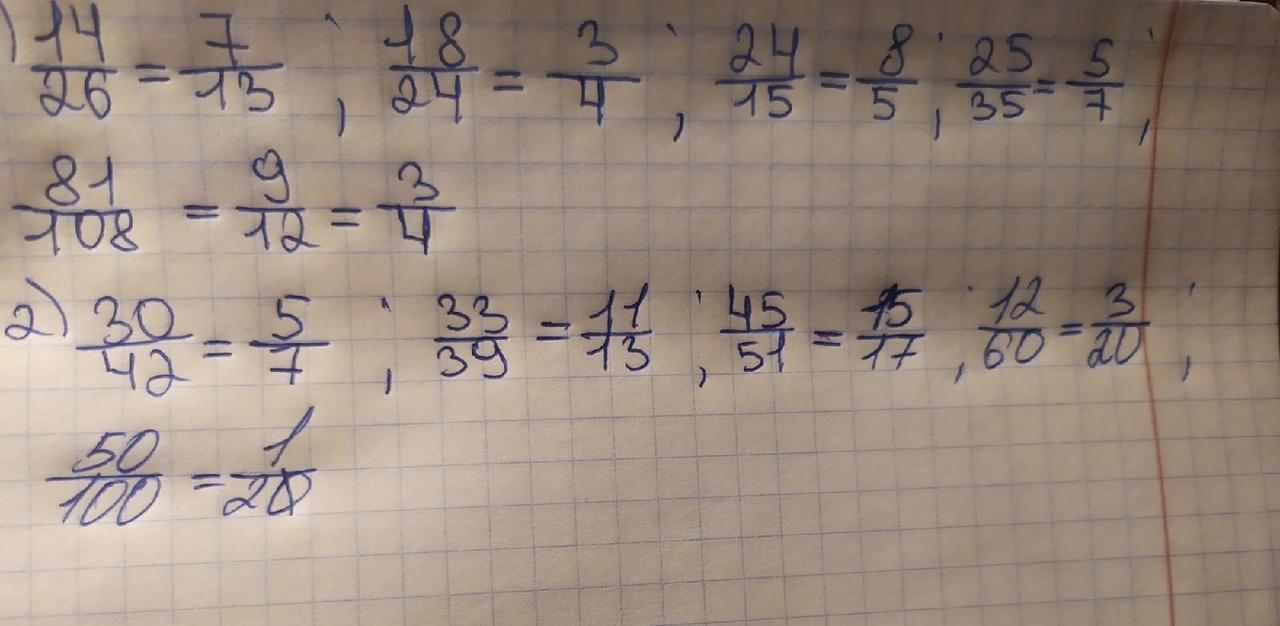 1) 14/26 = 7/13 ; 18/24 = 3/4 ; 24/15 = 8/5 ; 25/35 = 5/7 ;
81/108 = 9/12 = 3/4
2) 30/42 = 5/7 ; 33/39 = 11/13 ; 45/51 = 15/17 ; 12/60 = 3/20 ;
50/100 = 1/20